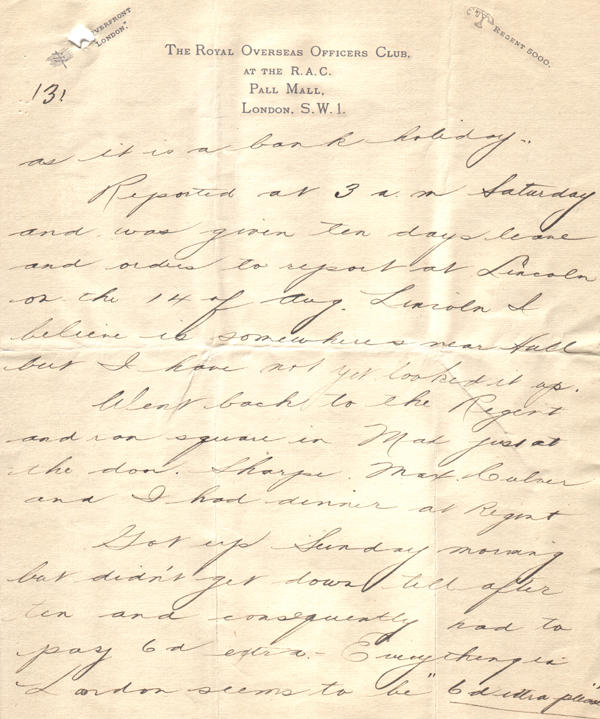 OVERFRONT
LONDON."
REGENT 5000.
THE ROYAL OVERSEAS OFFICERS CLUB,
AT THE R.A.C.
PALL MALL,
LONDON, S.W.1.
13,
as it is a bank holiday..
Reported at 3 a.m Saturday
and was given ten days leave
and orders to report at Lincoln
on the 14 of Aug. Lincoln I
believe is somewheres near Hull
but I have not yet looked it up.
Went back to the Regent
and ran square in Max just at
the door. Sharpe, Max, Culver
and I had dinner at Regent
Got up Sunday morning
but didn't get down till after
ten and consequently had to
pay 6d extra.- Everything in
London seems to be "6d extra please"